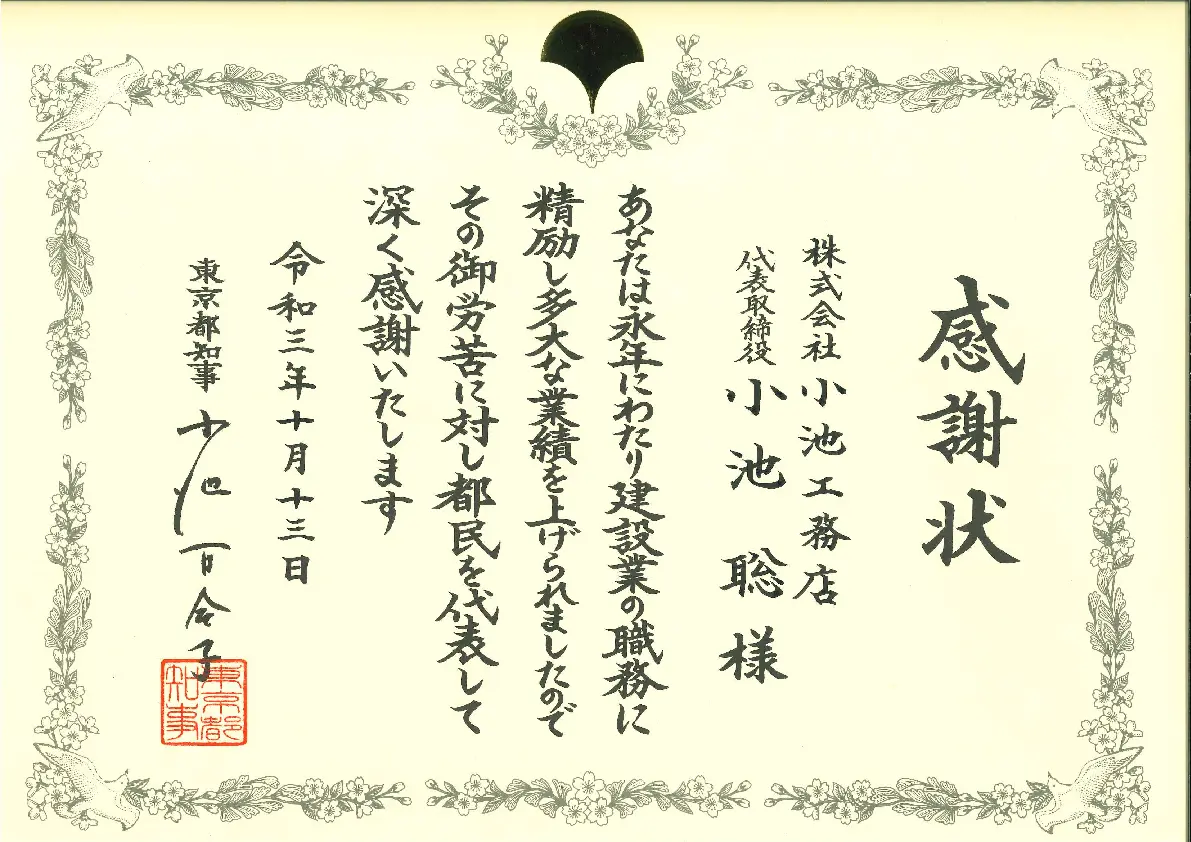 感謝状
株式会社小池工務店
代表取締役 小池 聡 様
あなたは永年にわたり建設業の職務に
精励し多大な業績を上げられましたので
その御労苦に対し都民を代表して
深く感謝いたします
令和三年十月十三日
東京都知事 小池百合子
東京都
知事